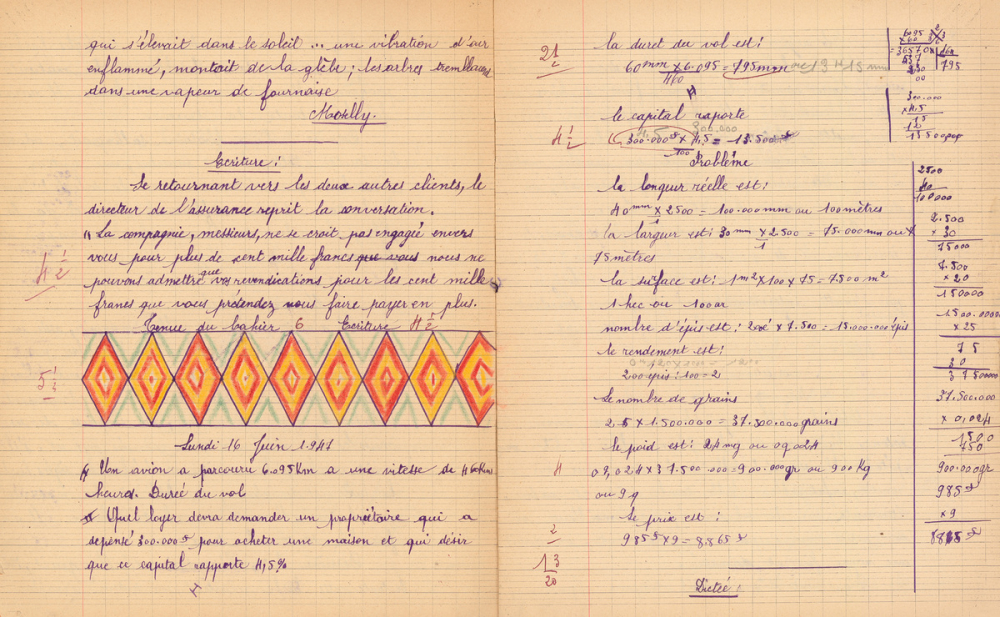 qui s'élevait dans le soleil ... une vibration d'air
enflammé, montait de la glèbe ; les arbres tremblaient
dans une vapeur de fournaise
Moselly.
Ecriture :
Se retournant vers les deux autres clients, le
directeur de l'assurance reprit la conversation.
"La compagnie, messieurs, ne se croit pas engagée envers
vous pour plus de cent mille francs que vous nous ne
pouvons admettre que vos revendications pour les cent mille
francs que vous pretendez nous faire payer en plus.
4 1/2
Tenue du Cahier 6 Ecriture 4 1/2
5 1/2
Lundi 16 Juin 1941
I Un avion a parcouru 6.095Km a une vitesse de 460Km
heures. Durée du vol
II Quel loyer devra demander un propriétaire qui a
depensé 300.000 f pour acheter une maison et qui désir
que ce capital rapporte 4,5%
2 1/2
la duret du vol est :
60mm x 6.095 = 795mm
460
le capital raporte
4 1/2
300.000 f x 4,5 = 13.500 f
100
Problème
la longeur réelle est :
40mm x 2500 = 100.000mm ou 100 mètres
1
la largeur est : 30mm x 2.500 = 75.000mm ou
1
75 mètres
la surface est : 1m² x 100 x 75 = 7500 m²
1 hec ou 100 ar
nombre d'épis est : 200é x 7.500 = 15.000.000 épis
le rendement est :
200 épis : 100 = 2
Le nombre de grains
2.5 x 1.500.000 = 37.500.000 grains
le poid est : 24mg ou 0g024
4
0g,024 x 37.500.000 = 900.000gr ou 900Kg
ou 9 q
Le prix est :
2
985 f x 9 = 8.865 f
13
20
Dictée :
6095
795
300.000
x 4,5
15
2500
40
100000
2.500
x 30
75000
7.500
x 20
150000
1500.000
x 25
75
30
37500000
37.500.000
x 0,024
1500
750
900.000gr
985 f
x 9
8865 f